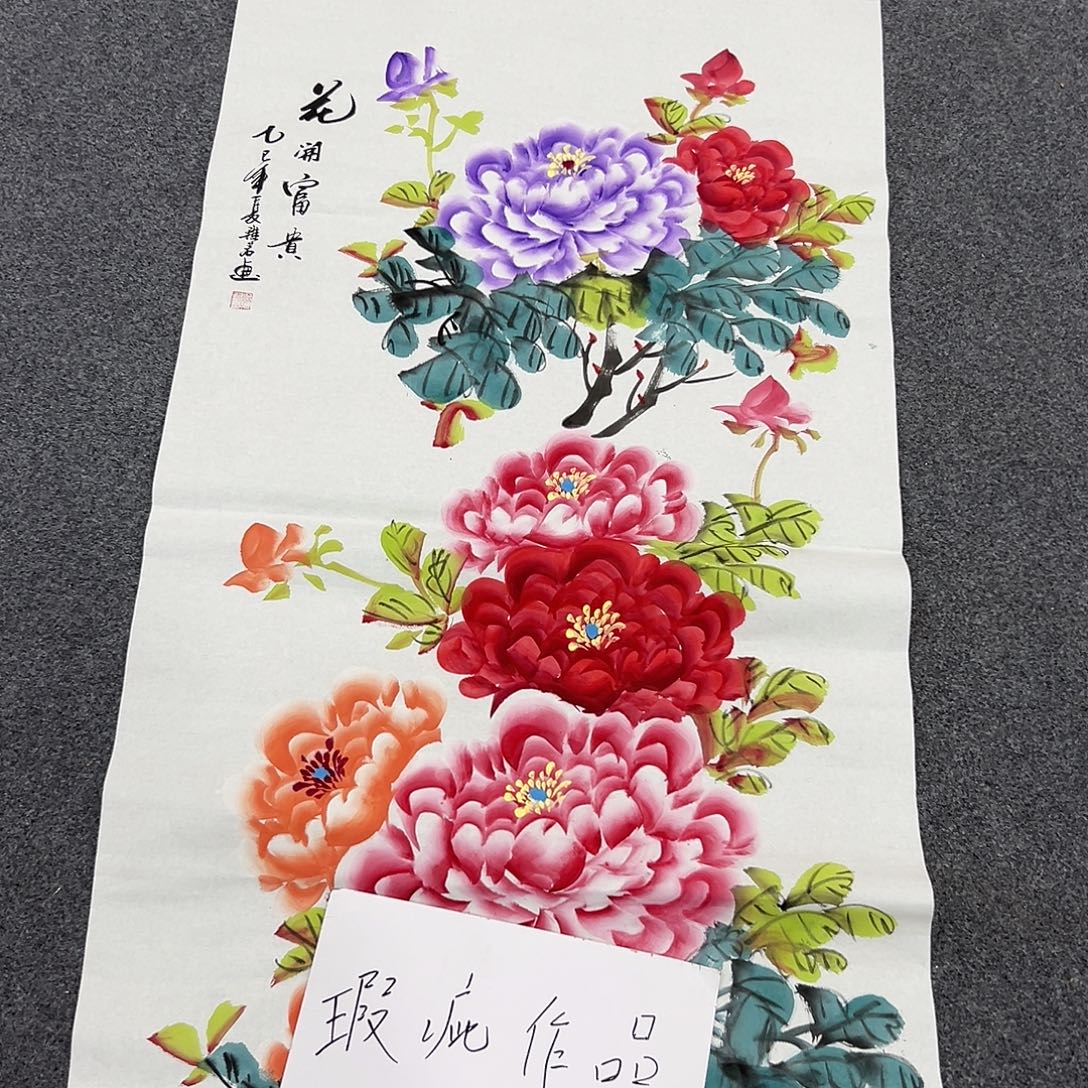 花開富貴
乙巳年夏雅若画
瑕疵作品